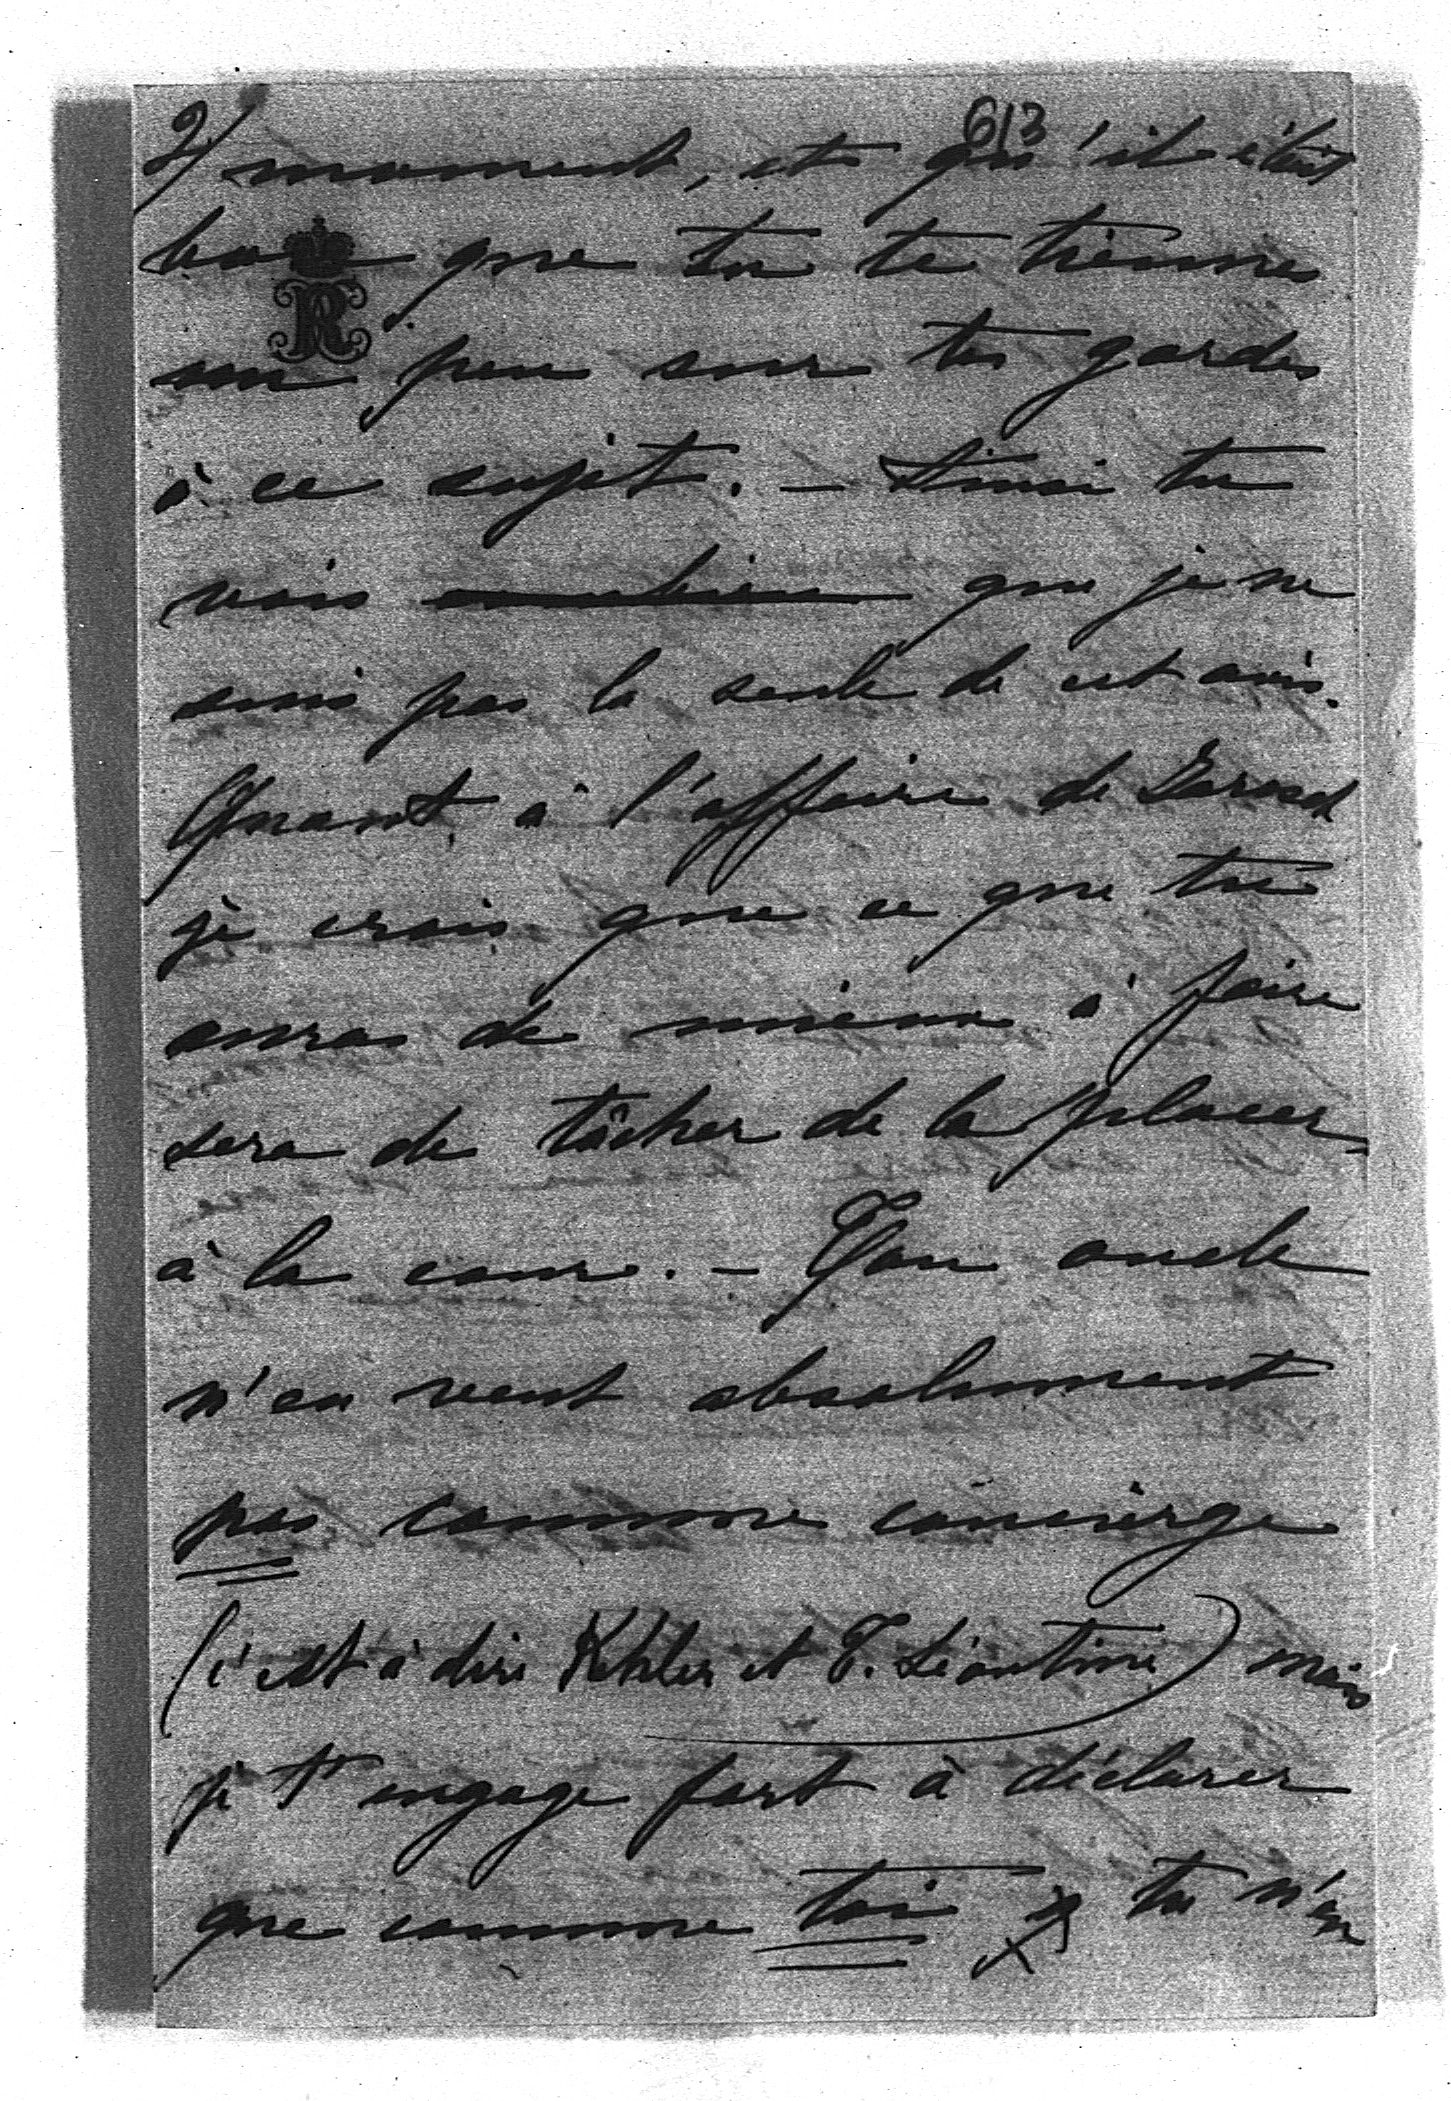 613
2/ moment, et qu'il était
bon que tu te tiennes
R
un peu sur tes gardes
à ce sujet. — Ainsi tu
vois combien que je ne
suis pas la seule de cet avis.
Quant à l'affaire de
je crois que ce que tu
auras de mieux à faire
sera de tâcher de la placer
à la cour. — Ton oncle
n'en veut absolument
pas comme concierge
(c'est à dire Köhler et T. Léontine) mais
je t'engage fort à déclarer
que comme toi tu n'en